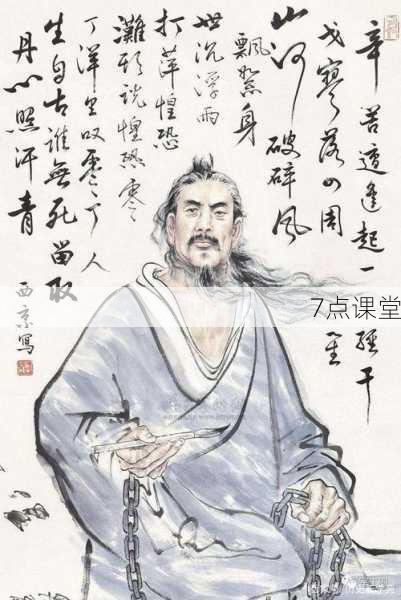 辛苦遭逢起一經干
戈寥落四周星
山河破碎風
飄絮身
世沉浮雨
打萍惶恐
灘頭說惶恐零
丁洋里叹零丁人
生自古誰無死留取
丹心照汗青
西京寫
7点课堂